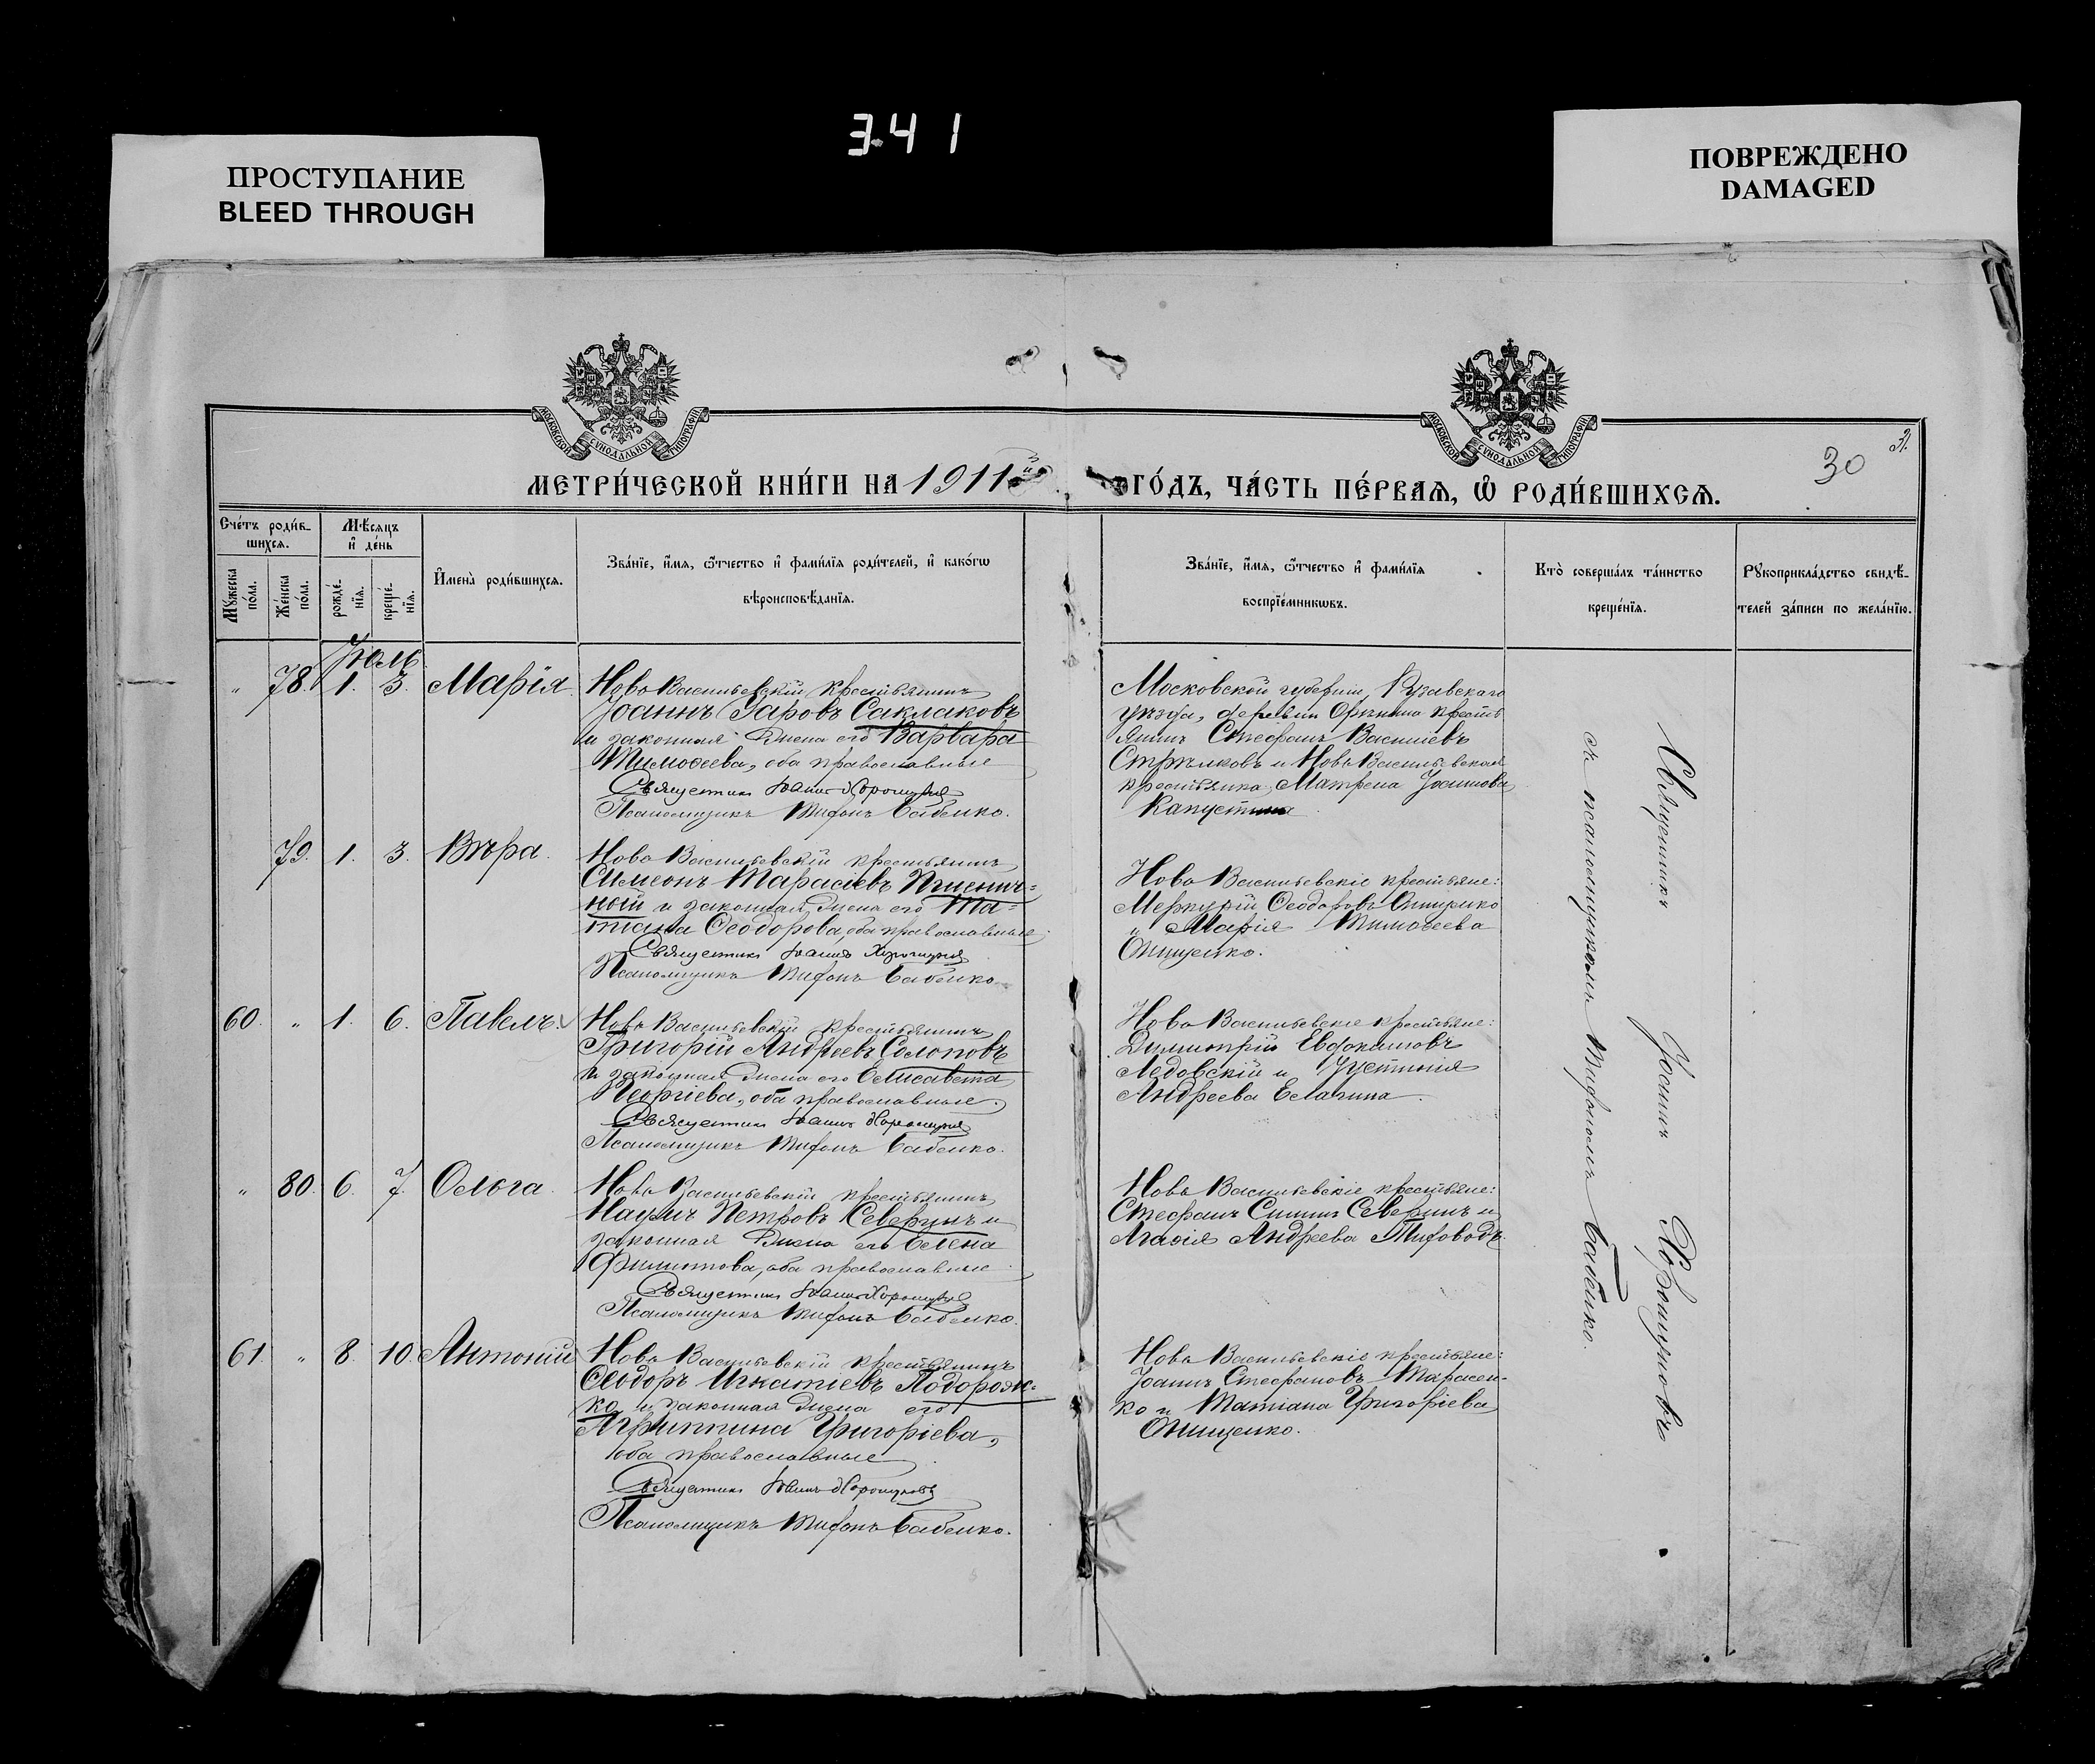 341
ПРОСТУПАНИЕ
BLEED THROUGH
ПОВРЕЖДЕНО
DAMAGED
МОСКОВСКОЙ СѴНОДАЛЬНОЙ ТИПОГРАФІИ
МОСКОВСКОЙ СѴНОДАЛЬНОЙ ТИПОГРАФІИ
31.
30
МЕТРИ́ЧЕСКОЙ КНИ́ГИ НА 1911й
ГО́ДЪ, ЧА́СТЬ ПЕ́РВАѦ, Ѡ҆ РОДИ́ВШИХСѦ.
Сче́тъ роди́в-
шихсѧ.
Мꙋ́жеска по́ла.
Же́нска по́ла.
Мѣ́сѧцъ
и҆ де́нь
рожде́-
нїѧ.
креще́-
нїѧ.
И҆мена̀ роди́вшихсѧ.
Зва́нїе, и҆́мѧ, ѻ҆́тчество и҆ фами́лїѧ роди́телей, и҆ како́гѡ
вѣроисповѣ́данїѧ.
Зва́нїе, и҆́мѧ, ѻ҆́тчество и҆ фами́лїѧ
воспрїе́мникѡвъ.
Кто̀ соверша́лъ та́инство
креще́нїѧ.
Рꙋкоприкла́дство свидѣ́-
телей за́писи по жела́нїю.
Іюль
" 78. 1. 3. Марія
Ново Васильевскій крестьянинъ
Іоаннъ Уаровъ Саклаковъ
и законная жена его Варвара
Тимоѳеева, оба православные
Священникъ Іоаннъ Хорошуновъ
Псаломщикъ Тифонъ Бабенко.
Московской губерніи, Рузавскаго
уѣзда, деревни кресть
янинъ Стефанъ Васильевъ
Стрѣлковъ и Ново Васильевская
крестьянка, Матрена Іоаннова
Капустина
79. 1. 3. Вѣра.
Ново Васильевскій крестьянинъ
Симеонъ Тарасіевъ Пшенич-
ный и законная жена его Та-
тіана Ѳеодорова, оба православные
Священникъ Іоаннъ Хорошуновъ
Псаломщикъ Тифонъ Бабенко.
Ново Васильевскіе крестьяне:
Меркурій Ѳеодоровъ Онищенко
и Марія Тимоѳеева
Онищенко.
60. " 1. 6. Павелъ.
Ново Васильевскій крестьянинъ
Григорій Андреевъ Солоповъ
и законная жена его Елисавета
Георгіева, оба православные.
Священникъ Іоаннъ Хорошуновъ
Псаломщикъ Тифонъ Бабенко.
Ново Васильевскіе крестьяне:
Димитрій Евдокимовъ
Ледовскій и Іустинія
Андреева Елагина.
" 80. 6. 7. Ольга.
Ново Васильевскій крестьянинъ
Наумъ Петровъ Северинъ и
законная жена его Елена
Филиппова, оба православные
Священникъ Іоаннъ Хорошуновъ
Псаломщикъ Тифонъ Бабенко.
Ново Васильевскіе крестьяне:
Стефанъ Северинъ и
Агаѳія Андреева Тифоводъ.
61. " 8. 10. Антоній
Ново Васильевскій крестьянинъ
Ѳеодоръ Игнатіевъ Подорож-
ко и законная жена его
Агриппина Григоріева,
оба православные
Священникъ Іоаннъ Хорошуновъ
Псаломщикъ Тифонъ Бабенко.
Ново Васильевскіе крестьяне:
Іоаннъ Стефановъ Тарасен-
ко и Татіана Григоріева
Онищенко.
Священникъ Іоаннъ Хорошуновъ
съ псаломщикомъ Тифономъ Бабенко.